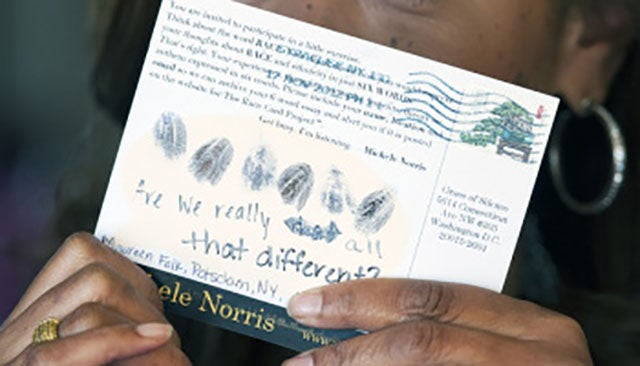 You are invited to participate in a little exercise.
Think about the word RACE
your thoughts about RACE and ethnicity in just SIX WORDS
That's right. Your experiences
anthem expressed in six words. Please include your name, location,
email so we can archive your 6 word essay and alert you if it is posted
on the website for The Race Card Project™
Get busy. I'm listening. - Michele Norris
17 NOV 2012 PM
Are We really all
that different?
Maureen Falk, Potsdam, NY,
ele Norris
www.
Grace of Silence
5614 Connecticut
Ave NW
Washington D.C.